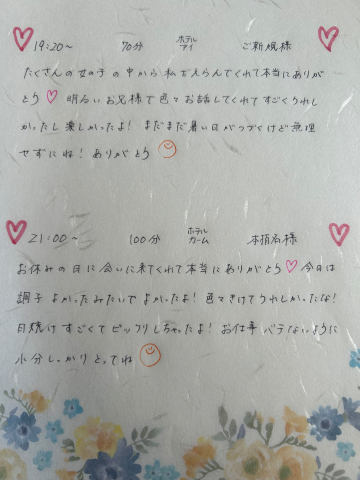 19:20~ 70分 ホテルアイ ご新規様
たくさんの女の子の中から私をえらんでくれて本当にありが
とう♡ 明るいお兄様で色々お話してくれてすごくうれし
かったし楽しかったよ! まだまだ暑い日がつづくけど無理
せずにね! ありがとう☺
21:00~ 100分 ホテルカーム 本指名様
お休みの日に会いに来てくれて本当にありがとう♡今日は
調子よかったみたいでよかったよ! 色々きけてうれしかったな!
日焼けすごくてビックリしちゃったよ! お仕事バテないように
水分しっかりとってね☺